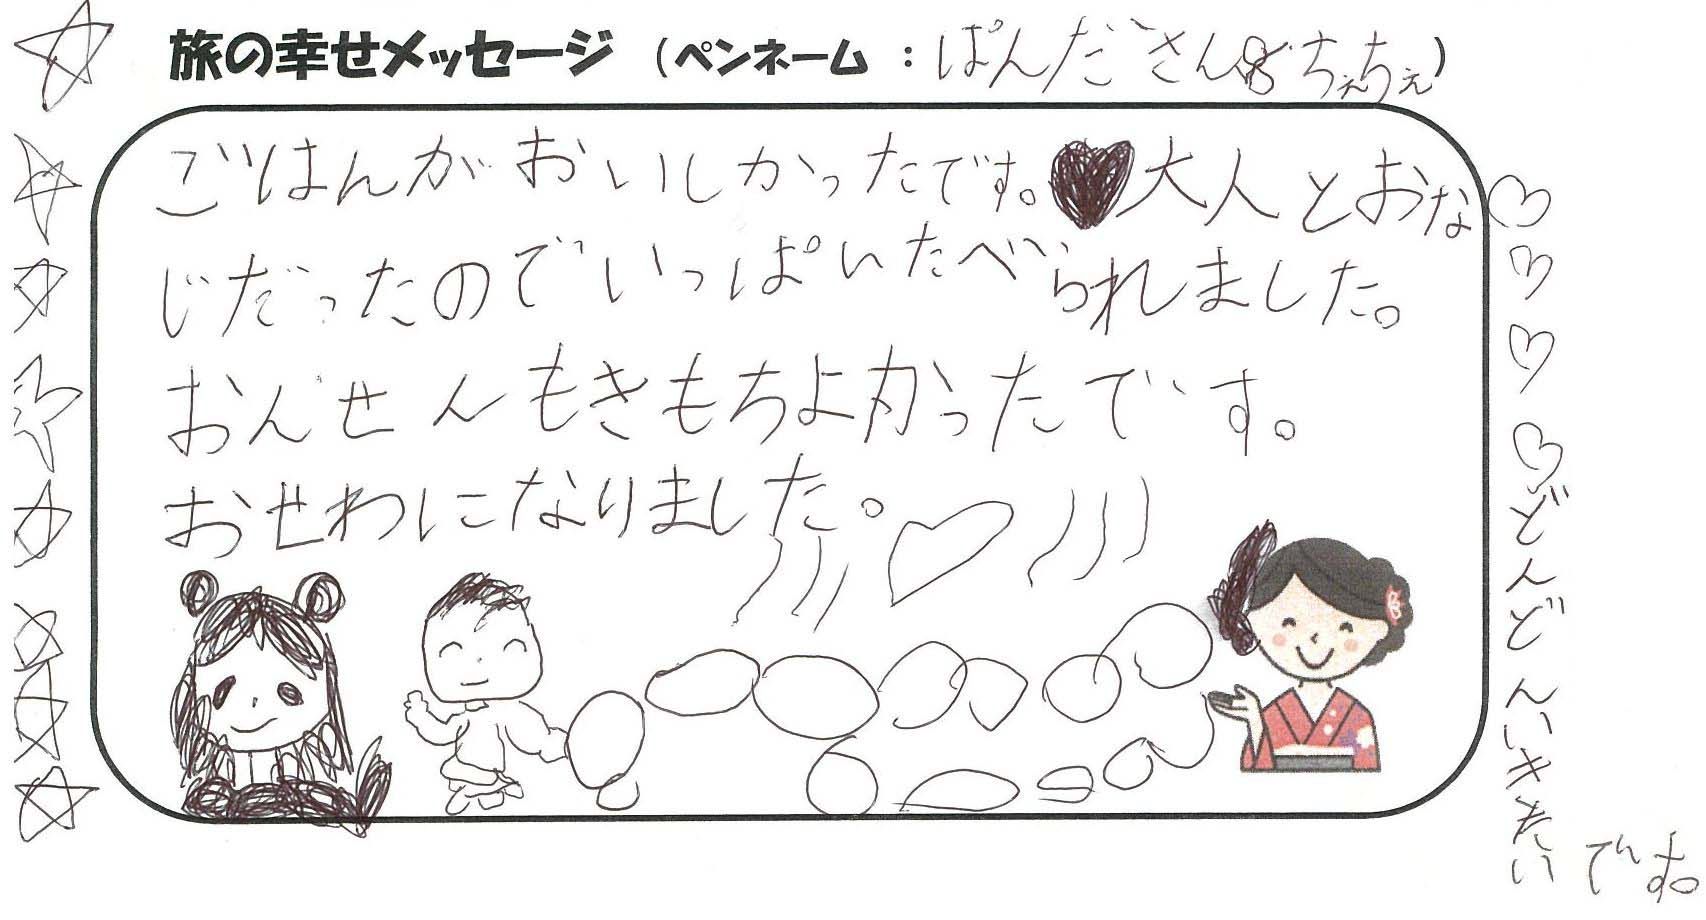 旅の幸せメッセージ (ペンネーム : ぱんださん&ちぇちぇ)
ごはんがおいしかったです。♥大人とおな
じだったのでいっぱいたべられました。
おんせんもきもちよかったです。
おせわになりました。♡
どんどんいきたいです。